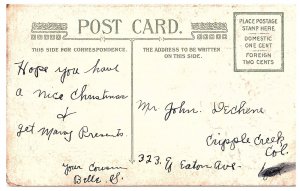 POST CARD.
THIS SIDE FOR CORRESPONDENCE.
THE ADDRESS TO BE WRITTEN
ON THIS SIDE.
PLACE POSTAGE
STAMP HERE
DOMESTIC
ONE CENT
FOREIGN
TWO CENTS
Hope you have
a nice Christmas
&
get Many Presents
Your Cousin
Belle
Mr John Dechene
Cripple Creek
Col.
323. E Eaton Ave.